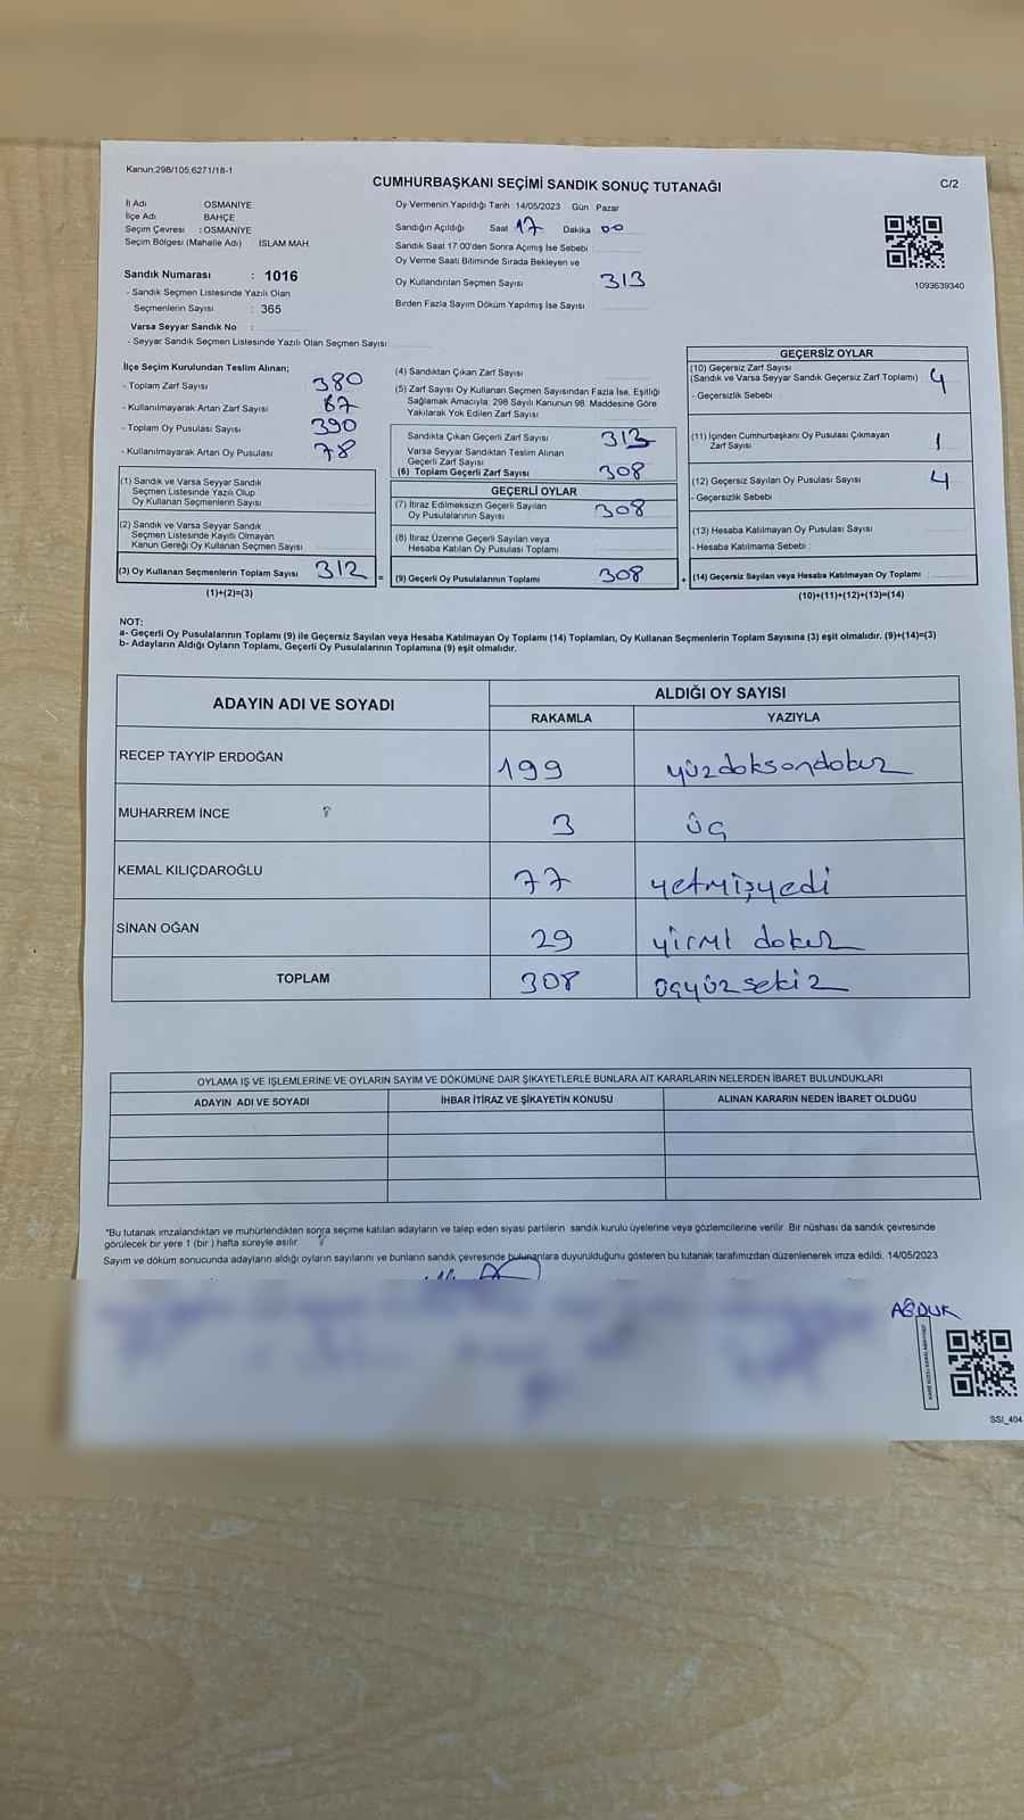 Kanun:298/105,6271/18-1
CUMHURBAŞKANI SEÇİMİ SANDIK SONUÇ TUTANAĞI
C/2
İl Adı OSMANİYE
İlçe Adı BAHÇE
Seçim Çevresi : OSMANİYE
Seçim Bölgesi (Mahalle Adı) İSLAM MAH.
Sandık Numarası : 1016
- Sandık Seçmen Listesinde Yazılı Olan
Seçmenlerin Sayısı : 365
Varsa Seyyar Sandık No :
- Seyyar Sandık Seçmen Listesinde Yazılı Olan Seçmen Sayısı
Oy Vermenin Yapıldığı Tarih :14/05/2023 Gün Pazar
Sandığın Açıldığı Saat 17 Dakika 00
Sandık Saat 17:00'den Sonra Açımış İse Sebebi
Oy Verme Saati Bitiminde Sırada Bekleyen ve
Oy Kullandırılan Seçmen Sayısı 313
Birden Fazla Sayım Döküm Yapılmış İse Sayısı
1093639340
İlçe Seçim Kurulundan Teslim Alınan;
- Toplam Zarf Sayısı 380
- Kullanılmayarak Artan Zarf Sayısı 67
- Toplam Oy Pusulası Sayısı 390
- Kullanılmayarak Artan Oy Pusulası 78
(1) Sandık ve Varsa Seyyar Sandık
Seçmen Listesinde Yazılı Olup
Oy Kullanan Seçmenlerin Sayısı
(2) Sandık ve Varsa Seyyar Sandık
Seçmen Listesinde Kayıtlı Olmayan
Kanun Gereği Oy Kullanan Seçmen Sayısı
(3) Oy Kullanan Seçmenlerin Toplam Sayısı 312 =
(1)+(2)=(3)
(4) Sandıktan Çıkan Zarf Sayısı
(5) Zarf Sayısı Oy Kullanan Seçmen Sayısından Fazla İse, Eşitliği
Sağlamak Amacıyla: 298 Sayılı Kanunun 98. Maddesine Göre
Yakılarak Yok Edilen Zarf Sayısı
Sandıkta Çıkan Geçerli Zarf Sayısı 313
Varsa Seyyar Sandıktan Teslim Alınan
Geçerli Zarf Sayısı
(6) Toplam Geçerli Zarf Sayısı 308
GEÇERLİ OYLAR
(7) İtiraz Edilmeksizin Geçerli Sayılan
Oy Pusulalarının Sayısı 308
(8) İtiraz Üzerine Geçerli Sayılan veya
Hesaba Katılan Oy Pusulası Toplamı
(9) Geçerli Oy Pusulalarının Toplamı 308 +
GEÇERSİZ OYLAR
(10) Geçersiz Zarf Sayısı
(Sandık ve Varsa Seyyar Sandık Geçersiz Zarf Toplamı) 4
- Geçersizlik Sebebi
(11) İçinden Cumhurbaşkanı Oy Pusulası Çıkmayan
Zarf Sayısı 1
(12) Geçersiz Sayılan Oy Pusulası Sayısı 4
- Geçersizlik Sebebi
(13) Hesaba Katılmayan Oy Pusulası Sayısı
- Hesaba Katılmama Sebebi :
(14) Geçersiz Sayılan veya Hesaba Katılmayan Oy Toplamı
(10)+(11)+(12)+(13)=(14)
NOT:
a- Geçerli Oy Pusulalarının Toplamı (9) ile Geçersiz Sayılan veya Hesaba Katılmayan Oy Toplamı (14) Toplamları, Oy Kullanan Seçmenlerin Toplam Sayısına (3) eşit olmalıdır. (9)+(14)=(3)
b- Adayların Aldığı Oyların Toplamı, Geçerli Oy Pusulalarının Toplamına (9) eşit olmalıdır.
ADAYIN ADI VE SOYADI ALDIĞI OY SAYISI
RAKAMLA YAZIYLA
RECEP TAYYİP ERDOĞAN 199 yüzdoksandokuz
MUHARREM İNCE 3 üç
KEMAL KILIÇDAROĞLU 77 yetmişyedi
SİNAN OĞAN 29 yirmi dokuz
TOPLAM 308 üçyüzsekiz
OYLAMA İŞ VE İŞLEMLERİNE VE OYLARIN SAYIM VE DÖKÜMÜNE DAİR ŞİKAYETLERLE BUNLARA AİT KARARLARIN NELERDEN İBARET BULUNDUKLARI
ADAYIN ADI VE SOYADI İHBAR İTİRAZ VE ŞİKAYETİN KONUSU ALINAN KARARIN NEDEN İBARET OLDUĞU
*Bu tutanak imzalandıktan ve mühürlendikten sonra seçime katılan adayların ve talep eden siyasi partilerin sandık kurulu üyelerine veya gözlemcilerine verilir. Bir nüshası da sandık çevresinde
görülecek bir yere 1 (bir ) hafta süreyle asılır.
Sayım ve döküm sonucunda adayların aldığı oyların sayılarını ve bunların sandık çevresinde bulunanlara duyurulduğunu gösteren bu tutanak tarafımızdan düzenlenerek imza edildi. 14/05/2023
SSI_404